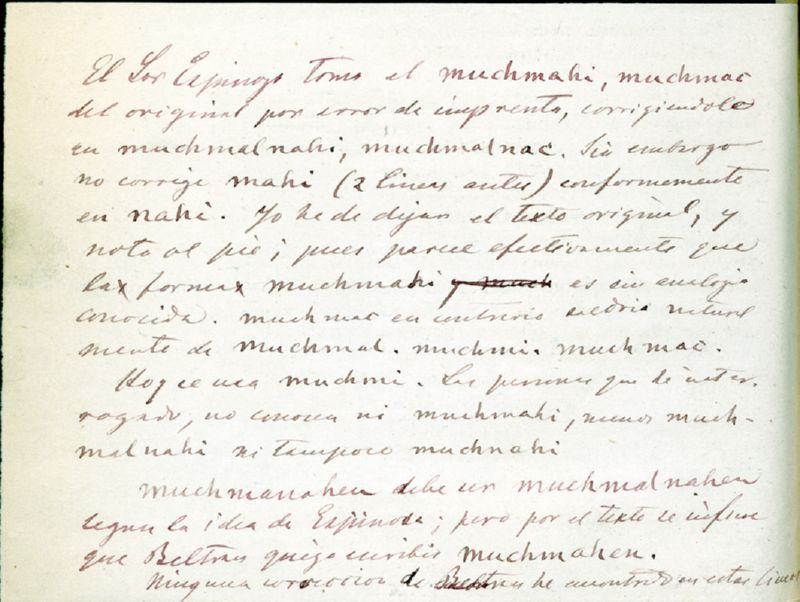 El Sor Espinosa toma el muchmahi, muchmac
del original por error de imprenta, corrigiendolo
en muchmalnahi, muchmalnac. Sin embargo
no corrige mahi (2 lineas antes) conformemente
en nahi. Yo he de dejar el texto original, y
nota al pie; pues parece efectivamente que
la forma muchmahi y much es sin analogia
conocida. muchmac en contrario saldria natural
mente de muchmal. muchmi. muchmac.
Hoy se usa muchmi. Las personas que he inter-
rogado, no conocen ni muchmahi, menos much-
malnahi ni tampoco muchnahi
muchmanahen debe ser muchmalnahen
segun la idea de Espinosa; pero por el texto se infiere
que Beltran quiso escribir muchmahen.
Ninguna correccion de he encontrado en estas lineas